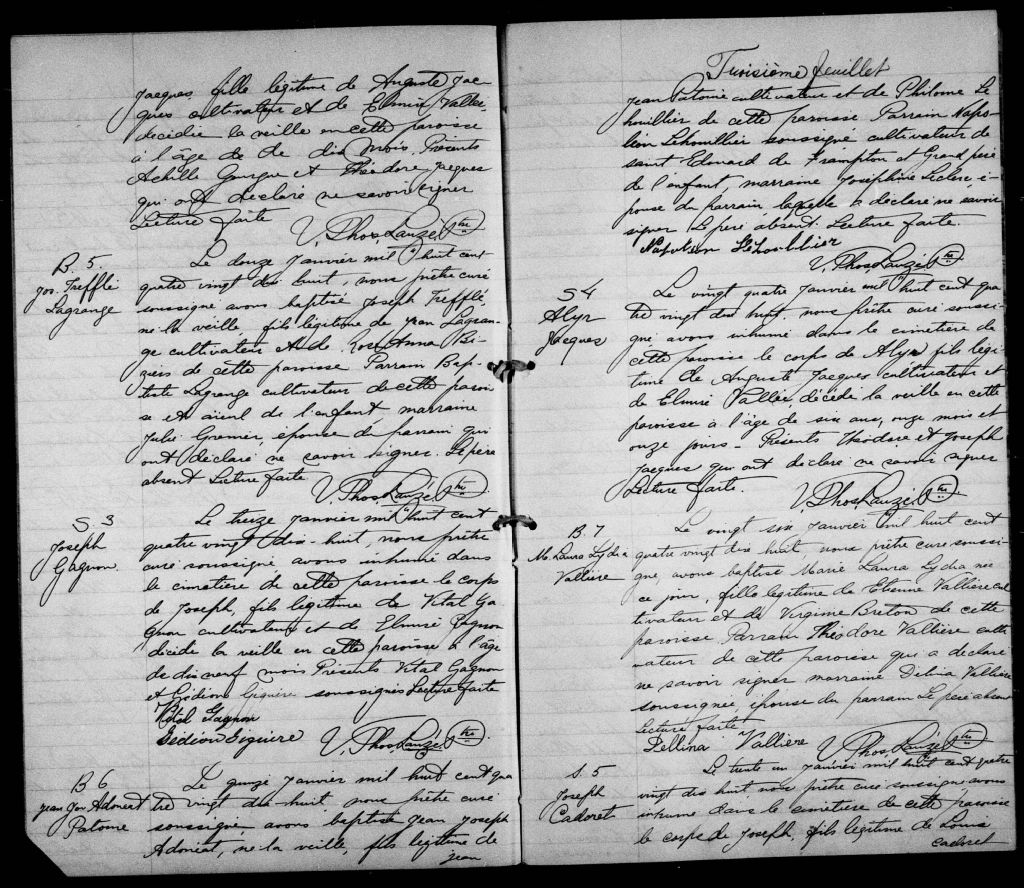 Jacques, fille légitime de Auguste Jac-
ques cultivateur et de Elmire Vallée
décédée la veille en cette paroisse
à l'âge de de dix mois. Présents
Achille Gourgue et Théodore Jacques
qui ont déclaré ne savoir signer
Lecture faite
V. Phos. Lauzé, Ptre
B. 5.
Jos. Trefflé
Lagrange
Le douze janvier mil huit cent
quatre vingt dix huit, nous prêtre curé
soussigné avons baptisé Joseph Trefflé,
né la veille, fils légitime de Jean Lagran-
ge cultivateur et de Rose Anna
de cette paroisse Parrain Bap-
tiste Lagrange cultivateur de cette parois-
se et aieul de l'enfant marraine
Julie Grenier, épouse du parrain qui
ont déclaré ne savoir signer. Le père
absent Lecture faite
V. Phos. Lauzé, Ptre
S. 3
Joseph
Gagnon
Le treize janvier mil huit cent
quatre vingt dix-huit, nous prêtre
curé soussigné avons inhumé dans
le cimetière de cette paroisse le corps
de Joseph, fils légitime de Vital Ga-
gnon cultivateur et de Elmire Gagnon
décédé la veille en cette paroisse à l'âge
de dix neuf mois Présents Vital Gagnon
et Gédéon Giguère soussignés Lecture faite
Vital Gagnon
Gédéon Giguère
V. Phos. Lauzé, Ptre
B 6
Jean Jos. Adoniat
Patoine
Le quinze janvier mil huit cent qua
tre vingt dix-huit nous prêtre curé
soussigné, avons baptisé Jean Joseph
Adoniat, né la veille, fils légitime de
Jean
Troisième feuillet
Jean Patoine cultivateur et de Philomene Le
houillier de cette paroisse Parrain Napo-
léon Lehouillier soussigné cultivateur de
saint Edouard de Frampton et Grand père
de l'enfant, marraine Joséphine Leclerc, é-
pouse du parrain laquelle a déclaré ne savoir
signer Le père absent. Lecture faite.
Napoléon Lehouillier
V. Phos. Lauzé Ptre
S 4
Alyr
Jacques
Le vingt quatre janvier mil huit cent qua
tre vingt dix huit, nous prêtre curé soussi-
gné, avons inhumé dans le cimetière de
cette paroisse le corps de Alyr fils légi-
time de Auguste Jacques cultivateur et
de Elmire Vallée, décédé la veille en cette
paroisse à l'âge de six ans, onze mois et
onze jours - Présents Théodore et Joseph
Jacques qui ont déclaré ne savoir signer
Lecture faite.
V. Phos. Lauzé, Ptre
B. 7
M. Laura Lydia
Vallière
Le vingt six janvier mil huit cent
quatre vingt dix huit, nous prêtre curé soussi-
gné, avons baptisé Marie Laura Lydia née
ce jour, fille légitime de Etienne Vallière cul
tivateur et de Virginie Breton de cette
paroisse Parrain Théodore Vallière culti
vateur de cette paroisse qui a déclaré
ne savoir signer marraine Délina Vallière
soussignée, épouse du parrain Le père absent
Lecture faite
Dellina Valliere
V. Phos. Lauzé Ptre
S. 5
Joseph
Cadoret
Le trente un janvier mil huit cent quatre
vingt dix huit nous prêtre curé soussigné avons
inhumé dans le cimetière de cette paroisse
le corps de Joseph, fils légitime de Louis
Cadoret